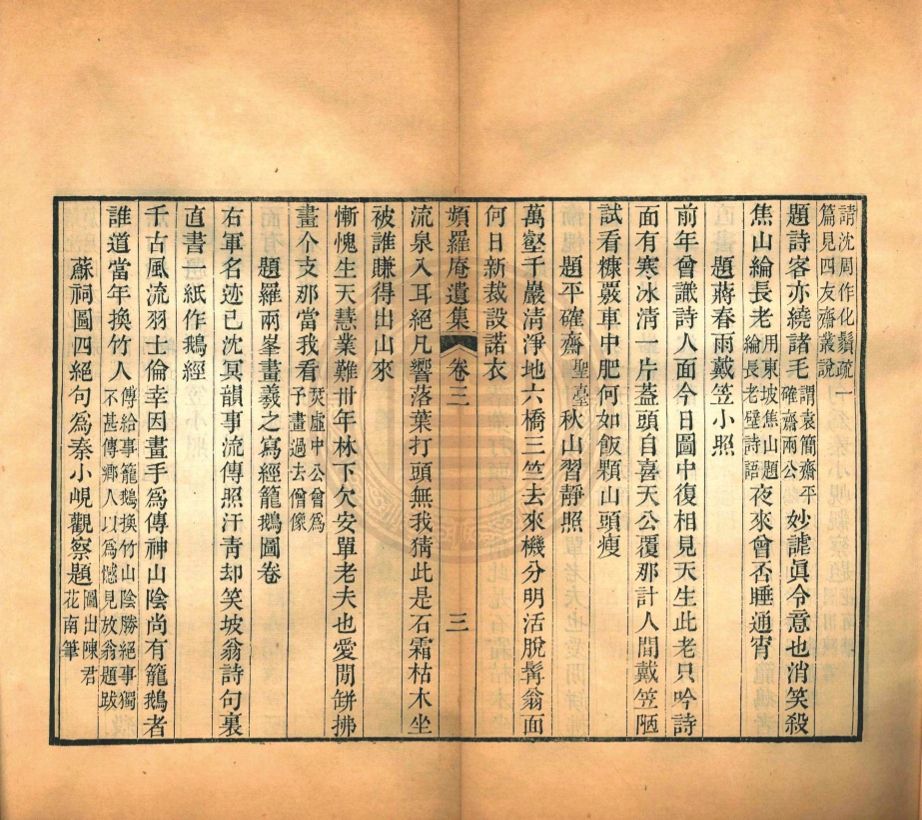 請沈周作化鬚疏一
篇見四友齋叢說
題詩客亦繞諸毛謂袁簡齋平確齋兩公妙謔眞令意也消笑殺
焦山綸長老用東坡焦山題綸長老壁詩語夜來曾否睡通宵
題蔣春雨戴笠小照
前年曾識詩人面今日圖中復相見天生此老只吟詩
面有寒冰清一片蓋頭自喜天公覆那計人間戴笠陋
試看糠覈車中肥何如飯顆山頭瘦
題平確齋聖臺秋山習靜照
萬壑千巖清淨地六橋三竺去來機分明活脫髯翁面
何日新裁設諾衣
頻羅庵遺集 卷三 三
流泉入耳絕凡響落葉打頭無我猜此是石霜枯木坐
被誰賺得出山來
慚愧生天慧業難卅年林下欠安單老夫也愛閒缾拂
畫个支那當我看虛中公曾爲予畫過去僧像
題羅兩峯畫羲之寫經籠鵝圖卷
右軍名迹已沈冥韻事流傳照汗青却笑坡翁詩句裏
直書一紙作鵝經
千古風流羽士倫幸因畫手爲傳神山陰尚有籠鵝者
誰道當年換竹人傅給事籠鵝換竹山陰勝絕事獨不甚傳鄉人以爲憾見放翁題跋
蘇祠圖四絕句爲秦小峴觀察題圖出陳君花南筆